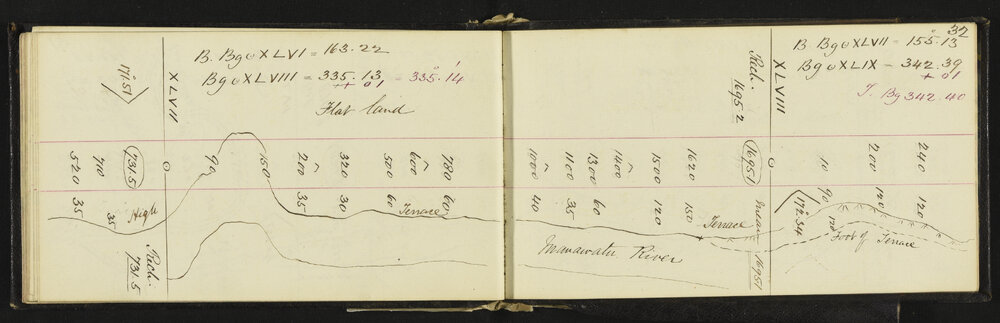 32
B. Bg o XLVI = 163.22
Bg o XLVIII = 335.13 = 335.14
++ 01
Flat land
XLVII
171.51
B. Bg o XLVII = 155.13
Bg o XLIX = 342.39
+ 01
T. Bg 342.40
XLVIII
Rich. 1695.2
520 710 731.5 0 90 150 200 320 500 600 780
35 35 High 35 30 60 Terrace 60
Rich. 731.5
1000 1100 1300 1400 1500 1620 1695.1 0 10 200 240
40 35 60 120 150 Terrace mean 1695.1 90 120 120
172.34
Foot of Terrace
Manawatu River